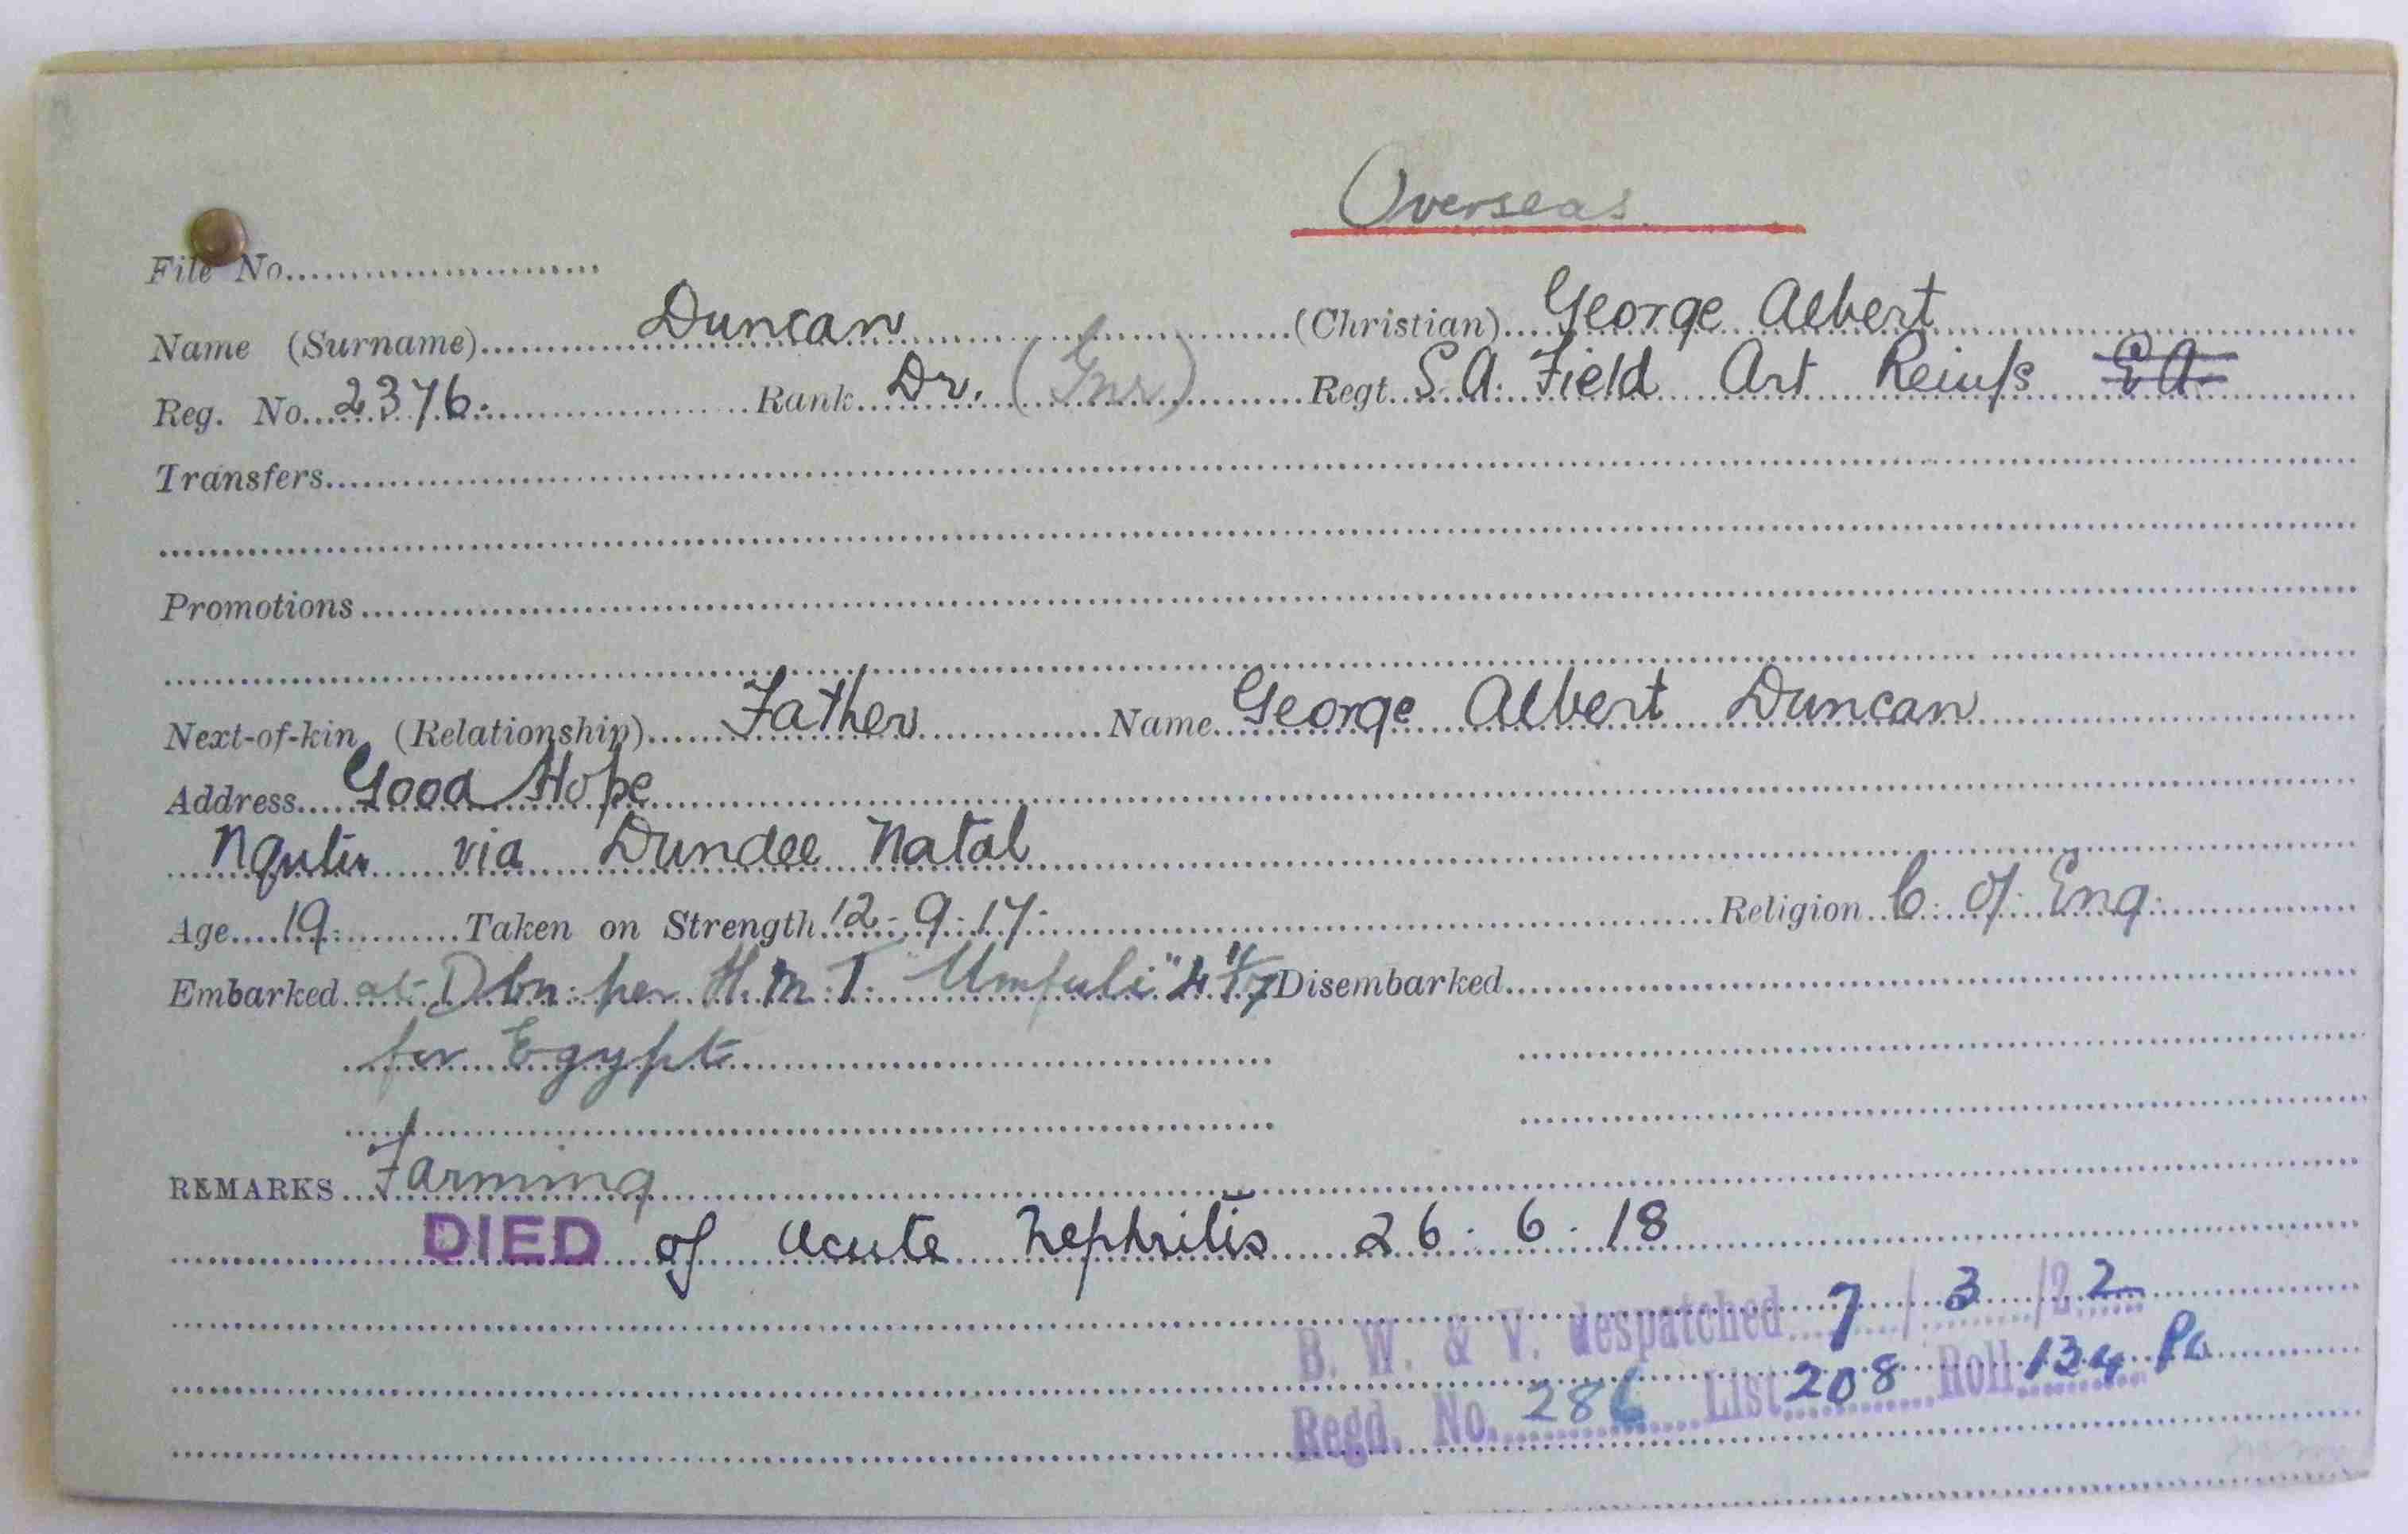 Overseas
File No.
Name (Surname) Duncan (Christian) George Albert
Reg. No. 2376. Rank Dr. (Gnr) Regt. S.A. Field Art Reinfs E A
Transfers
Promotions
Next-of-kin (Relationship) Father Name George Albert Duncan
Address Good Hope
Nqutu via Dundee Natal
Age 19. Taken on Strength 12-9-17. Religion C. of. Eng.
Embarked at Dbn. per H.M.T. Umfuli" Disembarked
for Egypt
REMARKS Farming
DIED of acute Nephritis 26.6.18
B. W. & V. despatched 7/3/22
Regd. No. 286 List 208 Roll 134